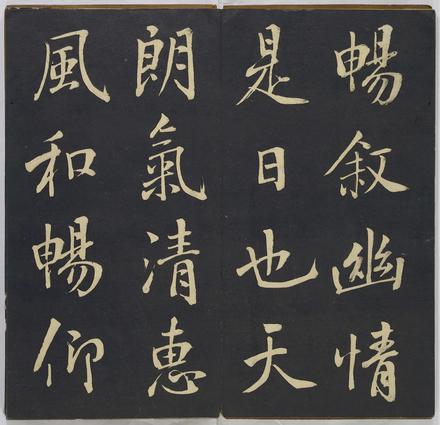 暢叙幽情
是日也天
朗氣清恵
風和暢仰